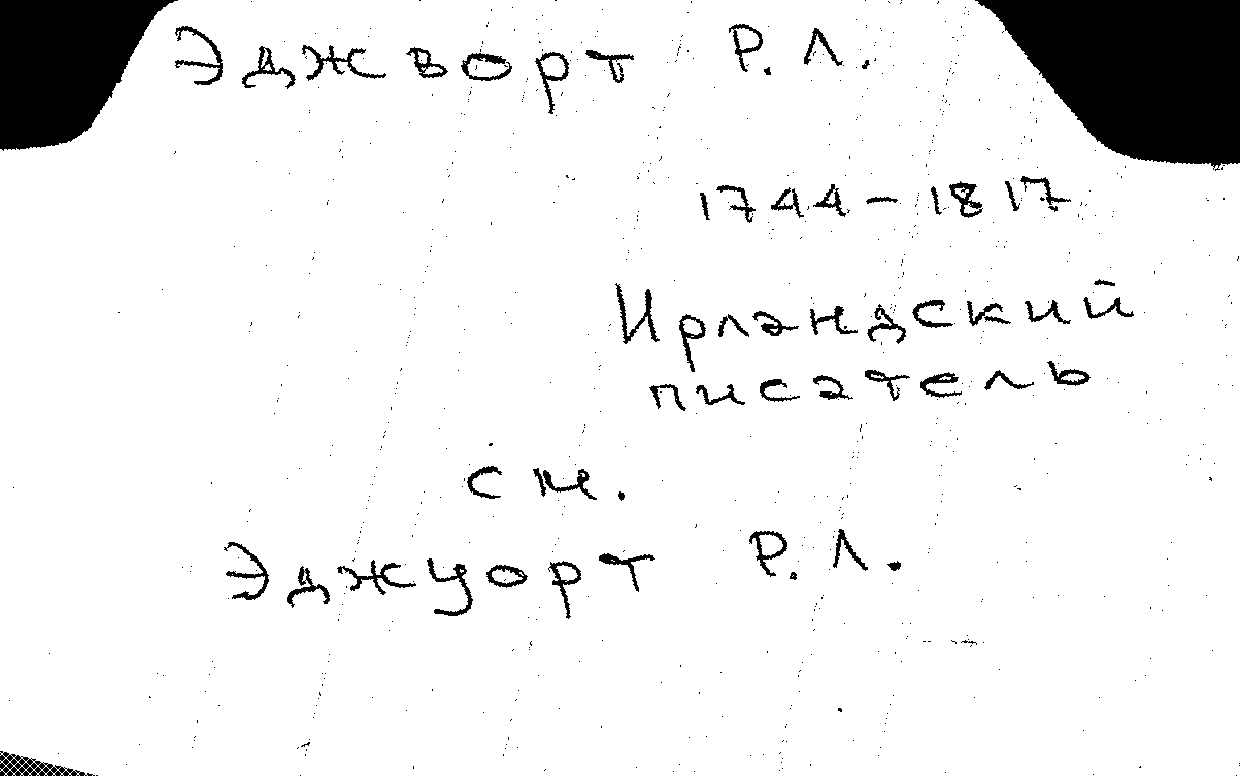 Эджворт Р. Л.
1744 – 1817
Ирландский
писатель
см.
Эджуорт Р. Л.